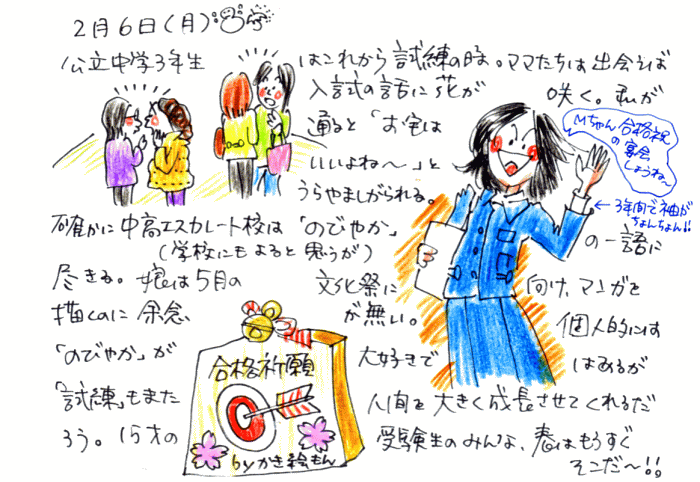 2月6日(月)
公立中学3年生はこれから試練の時。ママたちは出会えば
入試の話に花が咲く。私が
通ると「お宅は
いいよね〜」と
うらやましがられる。
確かに中高エスカレート校は「のびやか」の一語に
(学校にもよると思うが)
尽きる。娘は5月の文化祭に向け、マンガを
描くのに余念が無い。個人的には
「のびやか」が大好きではあるが
「試練」もまた人間を大きく成長させてくれるだ
ろう。15才の受験生のみんな、春はもうすぐ
そこだ〜!!
Mちゃん合格祝
の宴会
しようね〜
←3年間で袖が
ちょんちょん!!
合格祈願
byかき絵もん